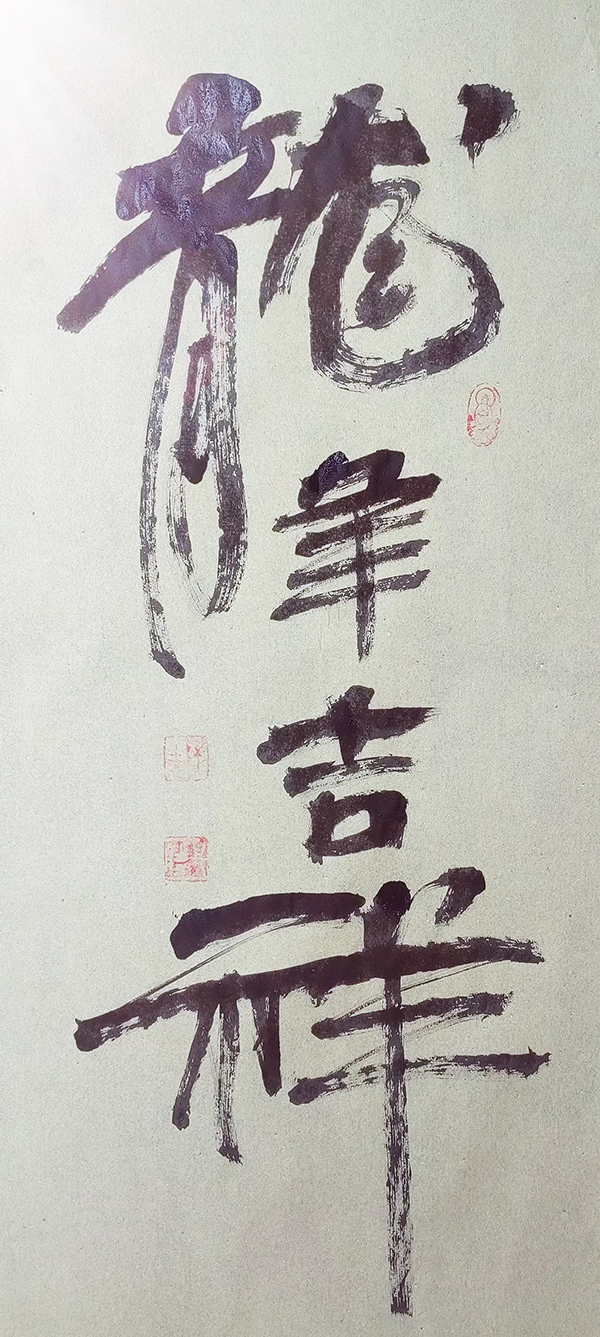 龍年吉祥